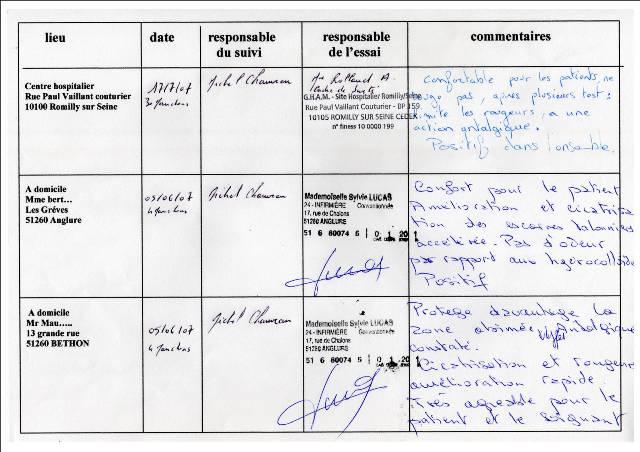 lieu
date
responsable du suivi
responsable de l'essai
commentaires
Centre hospitalier
Rue Paul Vaillant couturier
10100 Romilly sur Seine
17/7/07
Michel
Rolland A.
Cadre de Santé
G.H.A.M. - Site Hospitalier Romilly/Seine
Rue Paul Vaillant Couturier - BP 159
10105 ROMILLY SUR SEINE CEDEX
n° finess 10 0000 199
Confortable pour les patients, ne
pas, après plusieurs tests :
limite les rougeurs, a une
action antalgique.
Positif dans l'ensemble.
A domicile
Mme bert...
Les Gréves
51260 Anglure
05/06/07
Michel
Mademoiselle Sylvie LUCAS
24 - INFIRMIÈRE Conventionnée
17, rue de Chalons
51260 ANGLURE
51 6 60074 5
Confort pour le patient
Amélioration et cicatrisa
tion des escarres talonnières
accélérée. Pas d'odeur
par rapport aux hydrocolloïdes
Positif
A domicile
Mr Mau.....
13 grande rue
51260 BETHON
05/06/07
Michel
Mademoiselle Sylvie LUCAS
24 - INFIRMIÈRE Conventionnée
17, rue de Chalons
51260 ANGLURE
51 6 60074 5
Protège davantage la
zone abimée Antalgique
constaté.
Cicatrisation et rougeur
amélioration rapide.
Très agréable pour le
patient et le soignant